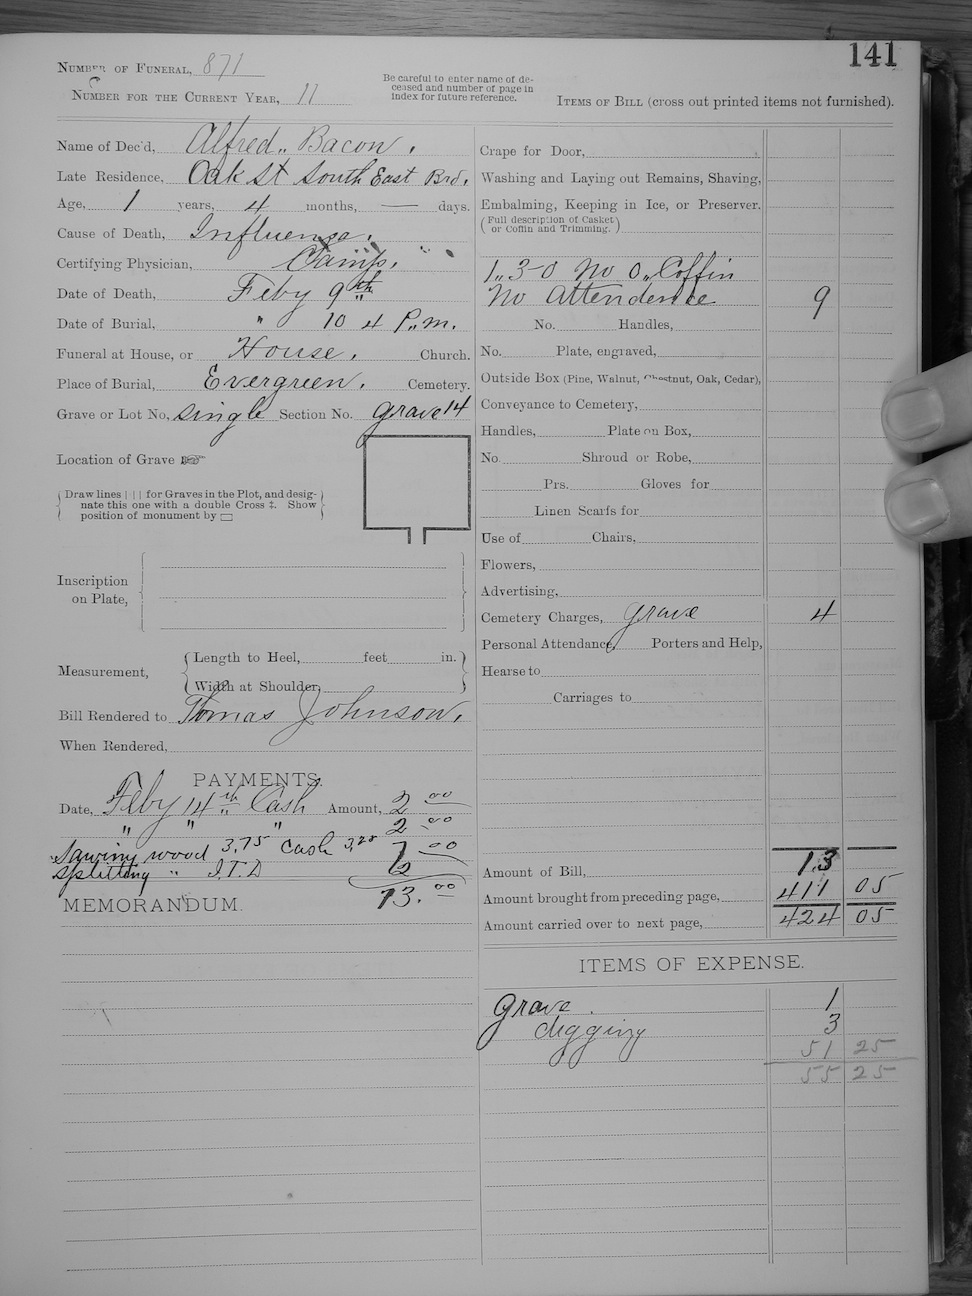 141
Number of Funeral, 871
Number for the Current Year, 11
Be careful to enter name of de-
ceased and number of page in
index for future reference.
Items of Bill (cross out printed items not furnished).
Name of Dec'd, Alfred Bacon.
Late Residence, Oak St South East Brd.
Age, 1 years, 4 months, — days.
Cause of Death, Influensa.
Certifying Physician,
Date of Death, Feby 9th
Date of Burial, " 10 4 P.m.
Funeral at House, or House. Church.
Place of Burial, Evergreen. Cemetery.
Grave or Lot No. single Section No. grave 14
Location of Grave ☞
Draw lines | | | for Graves in the Plot, and desig-
nate this one with a double Cross ‡. Show
position of monument by ▭
Inscription
on Plate,
Measurement,
Length to Heel, feet in.
Width at Shoulder,
Bill Rendered to Thomas Johnson.
When Rendered,
PAYMENTS.
Date, Feby 14th Cash Amount, 2 00
" " " 2 00
Sawing wood 3.75 Cash 3.25 7 00
Splitting " I.T.D 2
13.00
MEMORANDUM.
Crape for Door,
Washing and Laying out Remains, Shaving,
Embalming, Keeping in Ice, or Preserver.
(Full description of Casket
or Coffin and Trimming.)
1.. 3-0 No 0.. Coffin
No Attendence 9
No. Handles,
No. Plate, engraved,
Outside Box (Pine, Walnut, Chestnut, Oak, Cedar),
Conveyance to Cemetery,
Handles, Plate on Box,
No. Shroud or Robe,
Prs. Gloves for
Linen Scarfs for
Use of Chairs,
Flowers,
Advertising,
Cemetery Charges, grave 4
Personal Attendance, Porters and Help,
Hearse to
Carriages to
Amount of Bill, 13
Amount brought from preceding page, 411 05
Amount carried over to next page, 424 05
ITEMS OF EXPENSE.
Grave. 1
digging 3
51 25
55 25